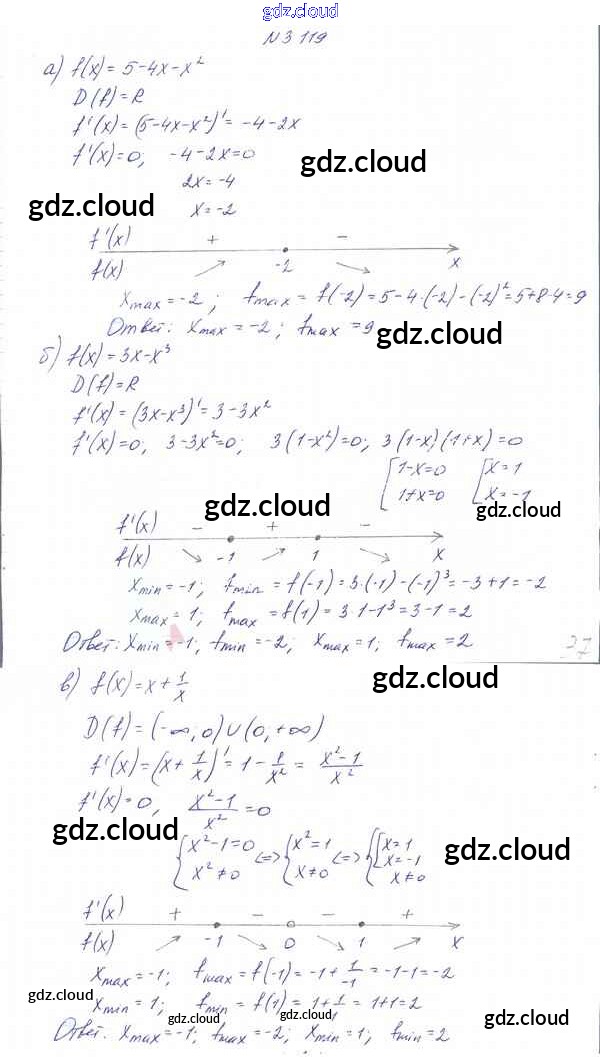 gdz.cloud
N 3 119
а) f(x) = 5-4x-x²
D(f) = R
f'(x) = (5-4x-x²)' = -4-2x
f'(x)=0; -4-2x=0
gdz.cloud
2x = -4
gdz.cloud
x = -2
f'(x) + -
f(x) -2 x
xmax = -2; fmax = f(-2) = 5-4·(-2)-(-2)² = 5+8-4=9
Ответ: xmax = -2; fmax = 9
gdz.cloud
б) f(x) = 3x-x³
D(f) = R
f'(x) = (3x-x³)' = 3-3x²
f'(x)=0; 3-3x²=0; 3(1-x²)=0; 3(1-x)(1+x)=0
[1-x=0 [x=1
1+x=0 x=-1
gdz.cloud gdz.cloud
f'(x) - + -
f(x) -1 1 x
xmin = -1; fmin = f(-1) = 3·(-1)-(-1)³ = -3+1 = -2
xmax = 1; fmax = f(1) = 3·1-1³ = 3-1 = 2
Ответ: xmin = -1; fmin = -2; xmax = 1; fmax = 2
37
в) f(x) = x + 1/x
gdz.cloud
D(f) = (-∞; 0) ∪ (0; +∞)
f'(x) = (x + 1/x)' = 1 - 1/x² = x²-1/x²
f'(x)=0, x²-1/x² = 0
gdz.cloud
{x²-1=0 <=> {x²=1 <=> {[x=1
x=-1
x²≠0 x≠0 x≠0
gdz.cloud
f'(x) + - - +
f(x) -1 0 1 x
xmax = -1; fmax = f(-1) = -1 + 1/-1 = -1-1 = -2
gdz.cloud
xmin = 1; fmin = f(1) = 1 + 1/1 = 1+1 = 2
gdz.cloud gdz.cloud
Ответ: xmax = -1; fmax = -2; xmin = 1; fmin = 2